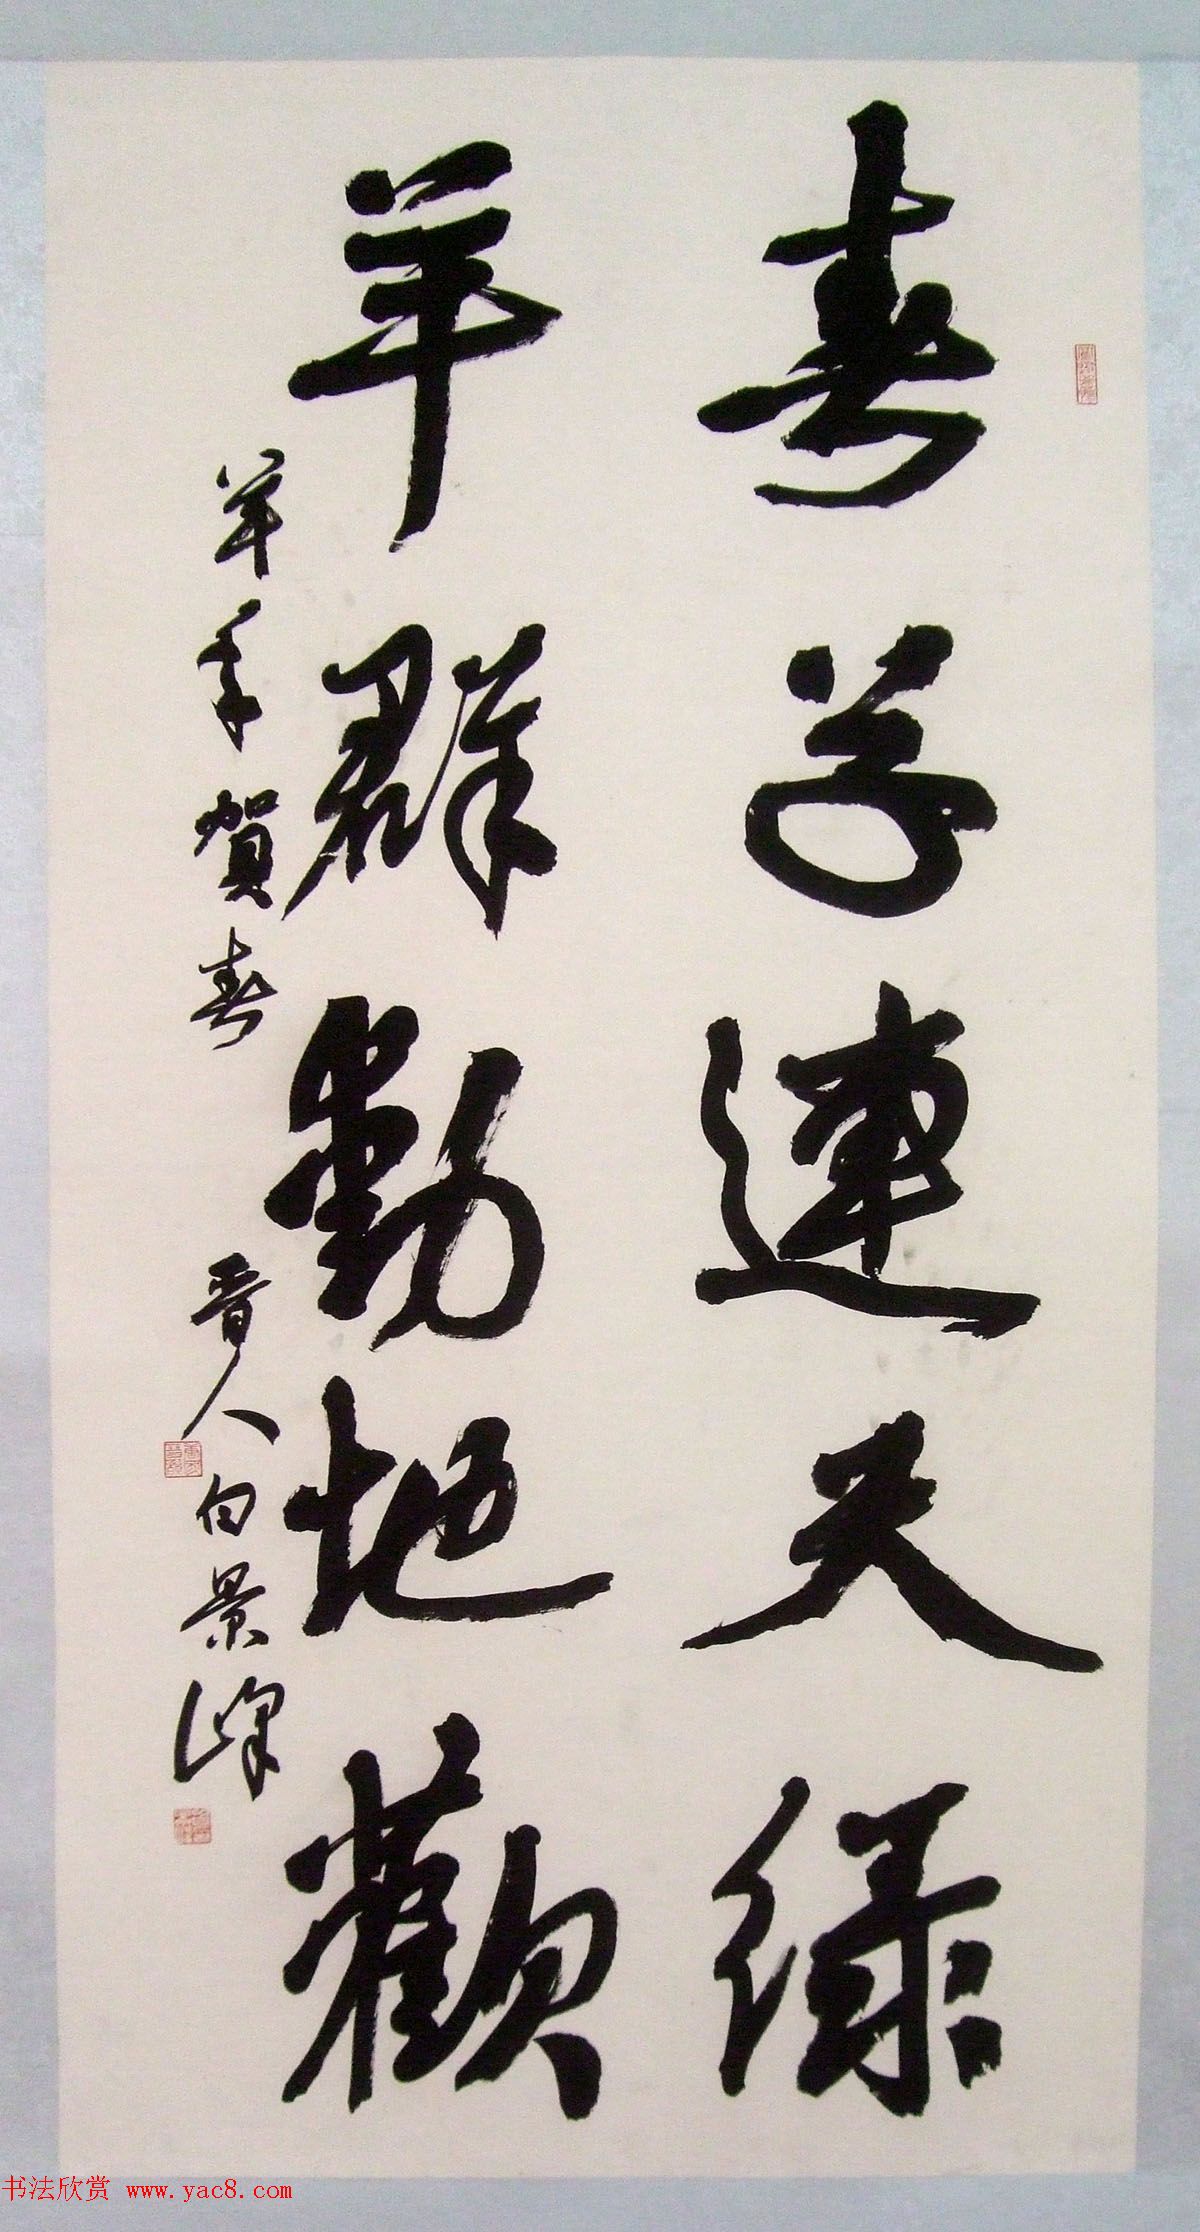 春草連天绿
羊群動地歡
羊年賀春 晋人白景峰
书法欣赏 www.yac8.com